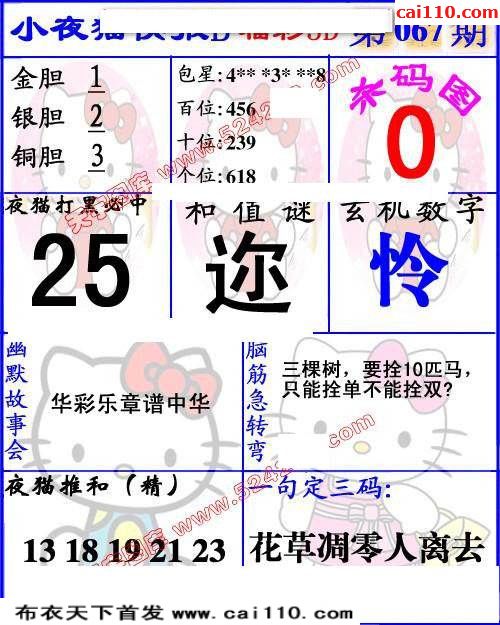 cai110.com
小夜猫快报D 福彩3D 第067期
金胆 1
银胆 2
铜胆 3
包星:4** *3* **8
百位:456
十位:239
个位:618
杀码图
0
夜猫打黑必中
25
和值谜
迩
玄机数字
怜
幽默故事会
华彩乐章谱中华
脑筋急转弯
三棵树，要拴10匹马，
只能拴单不能拴双?
夜猫推和（精）
13 18 19 21 23
一句定三码:
花草凋零人离去
布衣天下首发 www.cai110.com